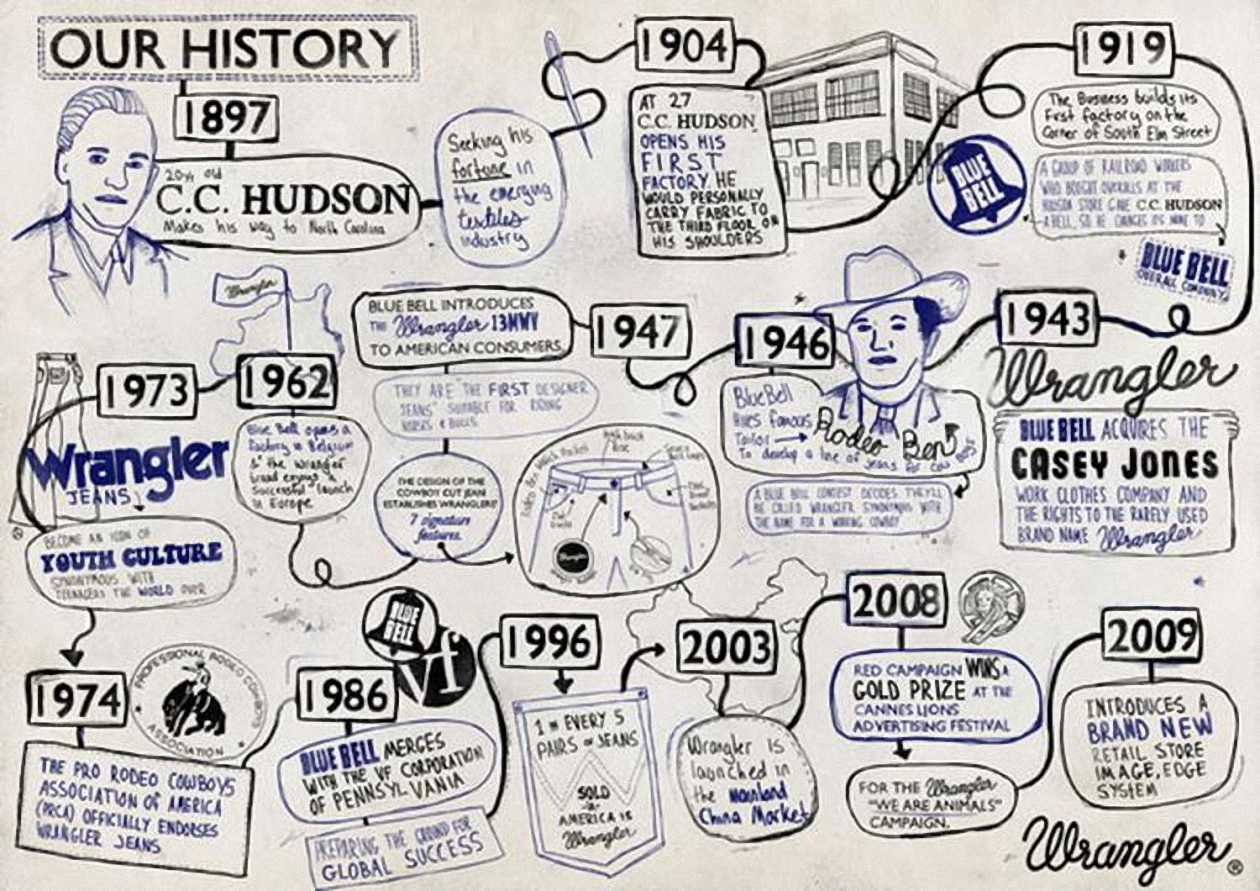 OUR HISTORY
1897
20yr old
C.C. HUDSON
Makes his way to North Carolina
Seeking his
fortune in
the emerging
textiles
industry
1904
AT 27
C.C. HUDSON
OPENS HIS
FIRST
FACTORY. HE
WOULD PERSONALLY
CARRY FABRIC TO
THE THIRD FLOOR ON
HIS SHOULDERS
1919
The Business builds its
First factory on the
Corner of South Elm Street
BLUE
BELL
A GROUP OF RAILROAD WORKERS
WHO BOUGHT OVERALLS AT THE
HUDSON STORE GAVE C.C. HUDSON
A BELL, SO HE CHANGES ITS NAME TO
BLUE BELL
OVERALL COMPANY
1943
Wrangler
BLUE BELL ACQUIRES THE
CASEY JONES
WORK CLOTHES COMPANY AND
THE RIGHTS TO THE RARELY USED
BRAND NAME Wrangler
1946
Blue Bell
Hires famous
Tailor Rodeo Ben
To develop a line of jeans for cow boys
A BLUE BELL CONTEST DECIDES THEY'LL
BE CALLED WRANGLER SYNONYMOUS WITH
THE NAME FOR A WORKING COWBOY
1947
BLUE BELL INTRODUCES
THE Wrangler 13MWY
TO AMERICAN CONSUMERS
THEY ARE THE FIRST DESIGNER
JEANS" SUITABLE FOR RIDING
HORSES & BULLS
THE DESIGN OF THE
COWBOY CUT JEAN
ESTABLISHES WRANGLERS'
7 signature
features.
Watch Pocket
High back
Rise
1962
Wrangler
Blue Bell opens a
factory in Belgium
& the Wrangler
brand enjoys a
successful launch
in Europe
1973
Wrangler
JEANS
BECOME AN ICON OF
YOUTH CULTURE
SYNONYMOUS WITH
TEENAGERS THE WORLD OVER
1974
PROFESSIONAL RODEO COWBOYS
ASSOCIATION
THE PRO RODEO COWBOYS
ASSOCIATION OF AMERICA
(PRCA) OFFICIALLY ENDORSES
WRANGLER JEANS
1986
BLUE
BELL
vf
BLUE BELL MERGES
WITH THE VF CORPORATION
OF PENNSYLVANIA
PREPARING THE GROUND FOR
GLOBAL SUCCESS
1996
1 IN EVERY 5
PAIRS OF JEANS
SOLD
IN
AMERICA IS
Wrangler
2003
Wrangler is
launched in
the Mainland
China Market
2008
RED CAMPAIGN WINS A
GOLD PRIZE AT THE
CANNES LIONS
ADVERTISING FESTIVAL
FOR THE Wrangler
"WE ARE ANIMALS"
CAMPAIGN.
2009
INTRODUCES A
BRAND NEW
RETAIL STORE
IMAGE, EDGE
SYSTEM
Wrangler®